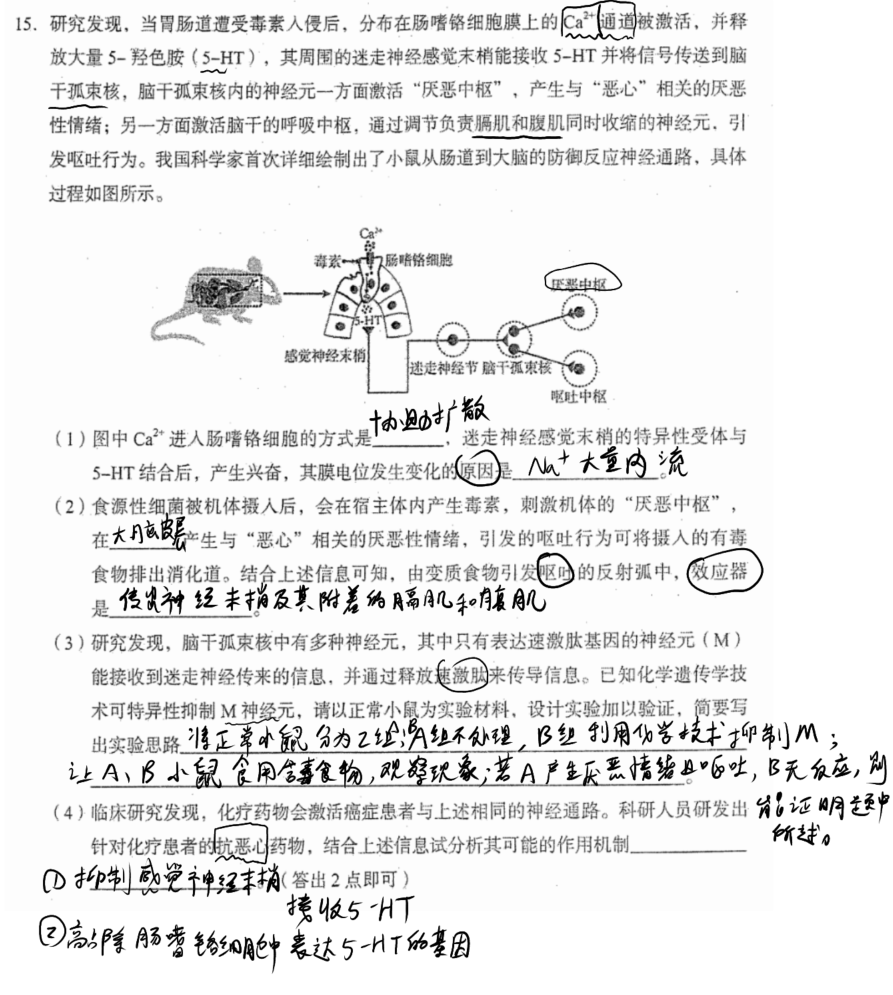 15. 研究发现，当胃肠道遭受毒素入侵后，分布在肠嗜铬细胞膜上的 Ca²⁺通道被激活，并释
放大量 5- 羟色胺（5-HT），其周围的迷走神经感觉末梢能接收 5-HT 并将信号传送到脑
干孤束核，脑干孤束核内的神经元一方面激活“厌恶中枢”，产生与“恶心”相关的厌恶
性情绪；另一方面激活脑干的呼吸中枢，通过调节负责膈肌和腹肌同时收缩的神经元，引
发呕吐行为。我国科学家首次详细绘制出了小鼠从肠道到大脑的防御反应神经通路，具体
过程如图所示。
Ca²⁺
毒素
肠嗜铬细胞
厌恶中枢
5-HT
感觉神经末梢
迷走神经节 脑干孤束核
呕吐中枢
（1）图中 Ca²⁺ 进入肠嗜铬细胞的方式是协助扩散，迷走神经感觉末梢的特异性受体与
5-HT 结合后，产生兴奋，其膜电位发生变化的原因是 Na⁺大量内流。
（2）食源性细菌被机体摄入后，会在宿主体内产生毒素，刺激机体的“厌恶中枢”，
在大脑皮层产生与“恶心”相关的厌恶性情绪，引发的呕吐行为可将摄入的有毒
食物排出消化道。结合上述信息可知，由变质食物引发呕吐的反射弧中，效应器
是 传出神经末梢及其附着的膈肌和腹肌。
（3）研究发现，脑干孤束核中有多种神经元，其中只有表达速激肽基因的神经元（M）
能接收到迷走神经传来的信息，并通过释放速激肽来传导信息。已知化学遗传学技
术可特异性抑制 M 神经元，请以正常小鼠为实验材料，设计实验加以验证，简要写
出实验思路 将正常小鼠分为2组；A组不处理，B组利用化学技术抑制M；
让A、B小鼠食用含毒食物，观察现象；若A产生厌恶情绪且呕吐，B无反应，则
能证明题中
所述。
（4）临床研究发现，化疗药物会激活癌症患者与上述相同的神经通路。科研人员研发出
针对化疗患者的抗恶心药物，结合上述信息试分析其可能的作用机制
①抑制感觉神经末梢（答出 2 点即可）
接收5-HT
②高除肠嗜铬细胞中表达5-HT的基因